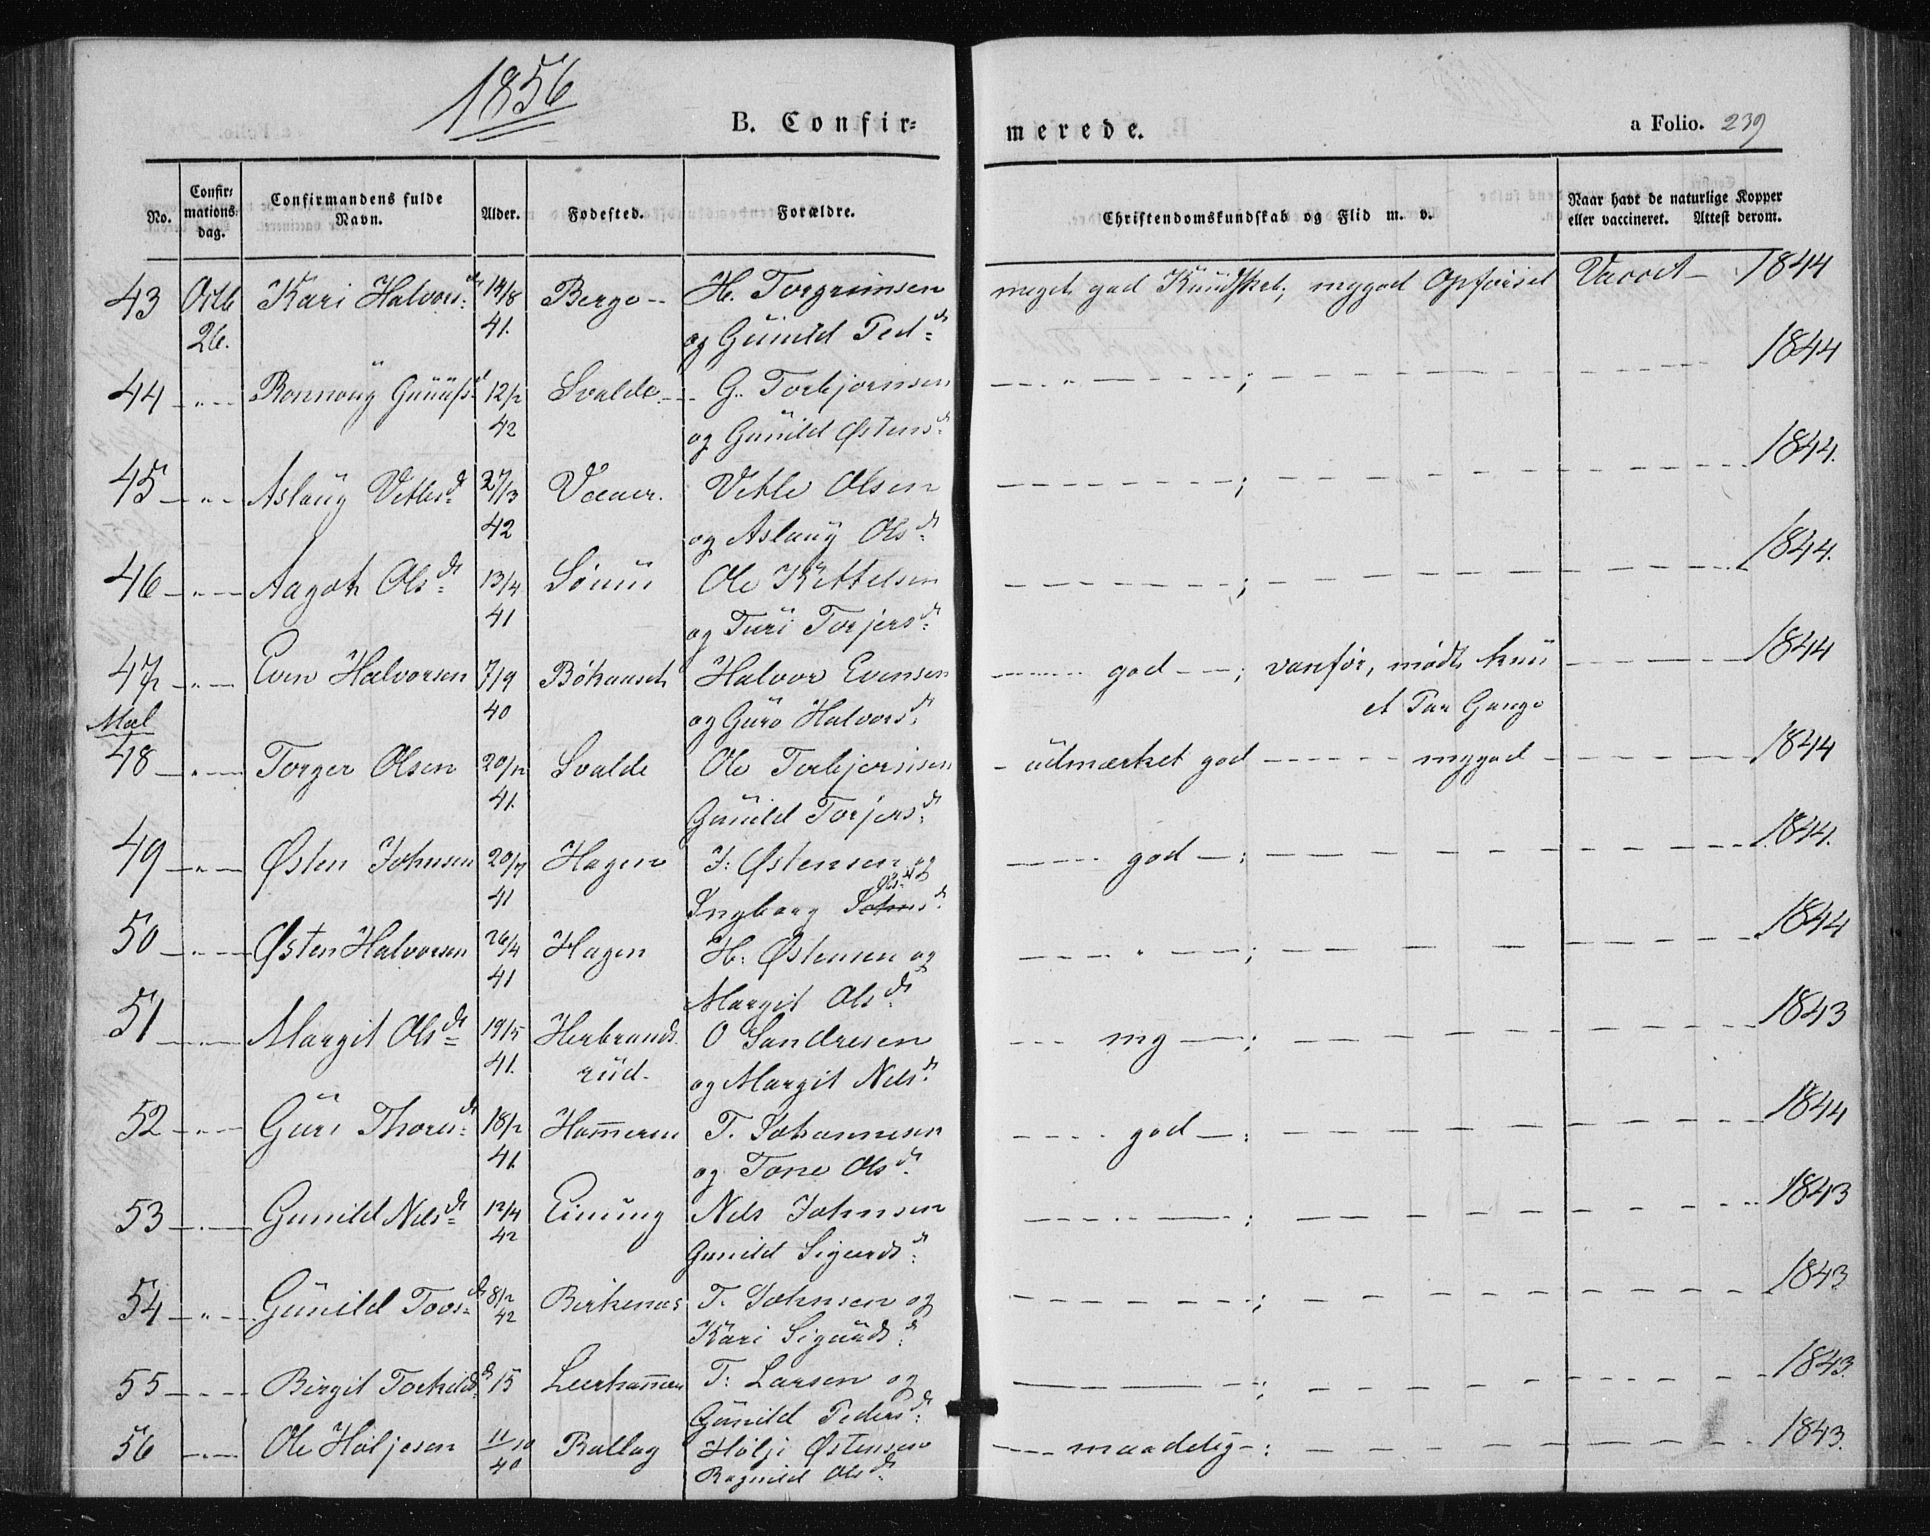 1856
B. Confir=
merede.
a Folio. 239
No.
Confir=
mations
dag.
Confirmandens fulde
Navn.
Alder.
Fødested.
Forældre.
Christendomskundskab og Flid m. v.
Naar havt de naturlige Kopper
eller vaccineret. Attest derom.
43 Octb Kari Halvorsd 14/8 Berge - H. Torgrimsen meget god Kundskab; mgod Opførsel Vaccet 1844
26. 41. og Gunild Pedd
44 Ronnoug Gunufsd 12/2 Svalde G. Torbjornsen 1844
42 og Gunild Østensd
45 Aslaug Vetlesd 27/3 Vetle Olsen 1844.
42 og Aslaug Olsd
46 Aagot Olsd 13/4 Ole Kittelsen 1844.
41 og Turi Torjersd
47 Even Halvorsen 7/9 Halvor Evensen god ; vanfør, mødte kun 1844
Mæl 40 og Guro Halvorsd et Par Gange
48 Torger Olsen 20/12 Svalde Ole Torbjørnsen udmærket god mgod 1844
41. Gunild Torjersd
49 Østen Johnsen 20/7 Hagen J: Østensen og god ; 1844.
41 Ingborg Johnsd Olsd
50 Østen Halvorsen 26/4 Hagen H: Østensen og 1844
41 Margit Olsd
51 Margit Olsd 19/5 Herbrands O Sandresen mg ; 1843
41. rud. og Margit Nelsd
52 Guri Thoresd 18/2 Hammeren T. Johannesen god ; 1844
41. og Tone Olsd
53 Gunild Nelsd 12/4 Einung Nels Johnsen 1843
42 Gunild Sigurdsd
54 Gunild Tovsd 8/2 Birkenæs T. Johnsen og 1843
42 Kari Sigurdsd
55 Birgit Torkildsd 15 Leerhammer T: Larsen og 1843.
Gunild Pedersd
56 Ole Høljesen 11/10 Rollag Hølje Østensen maadelig ; 1843.
40 Ragnild Olsd